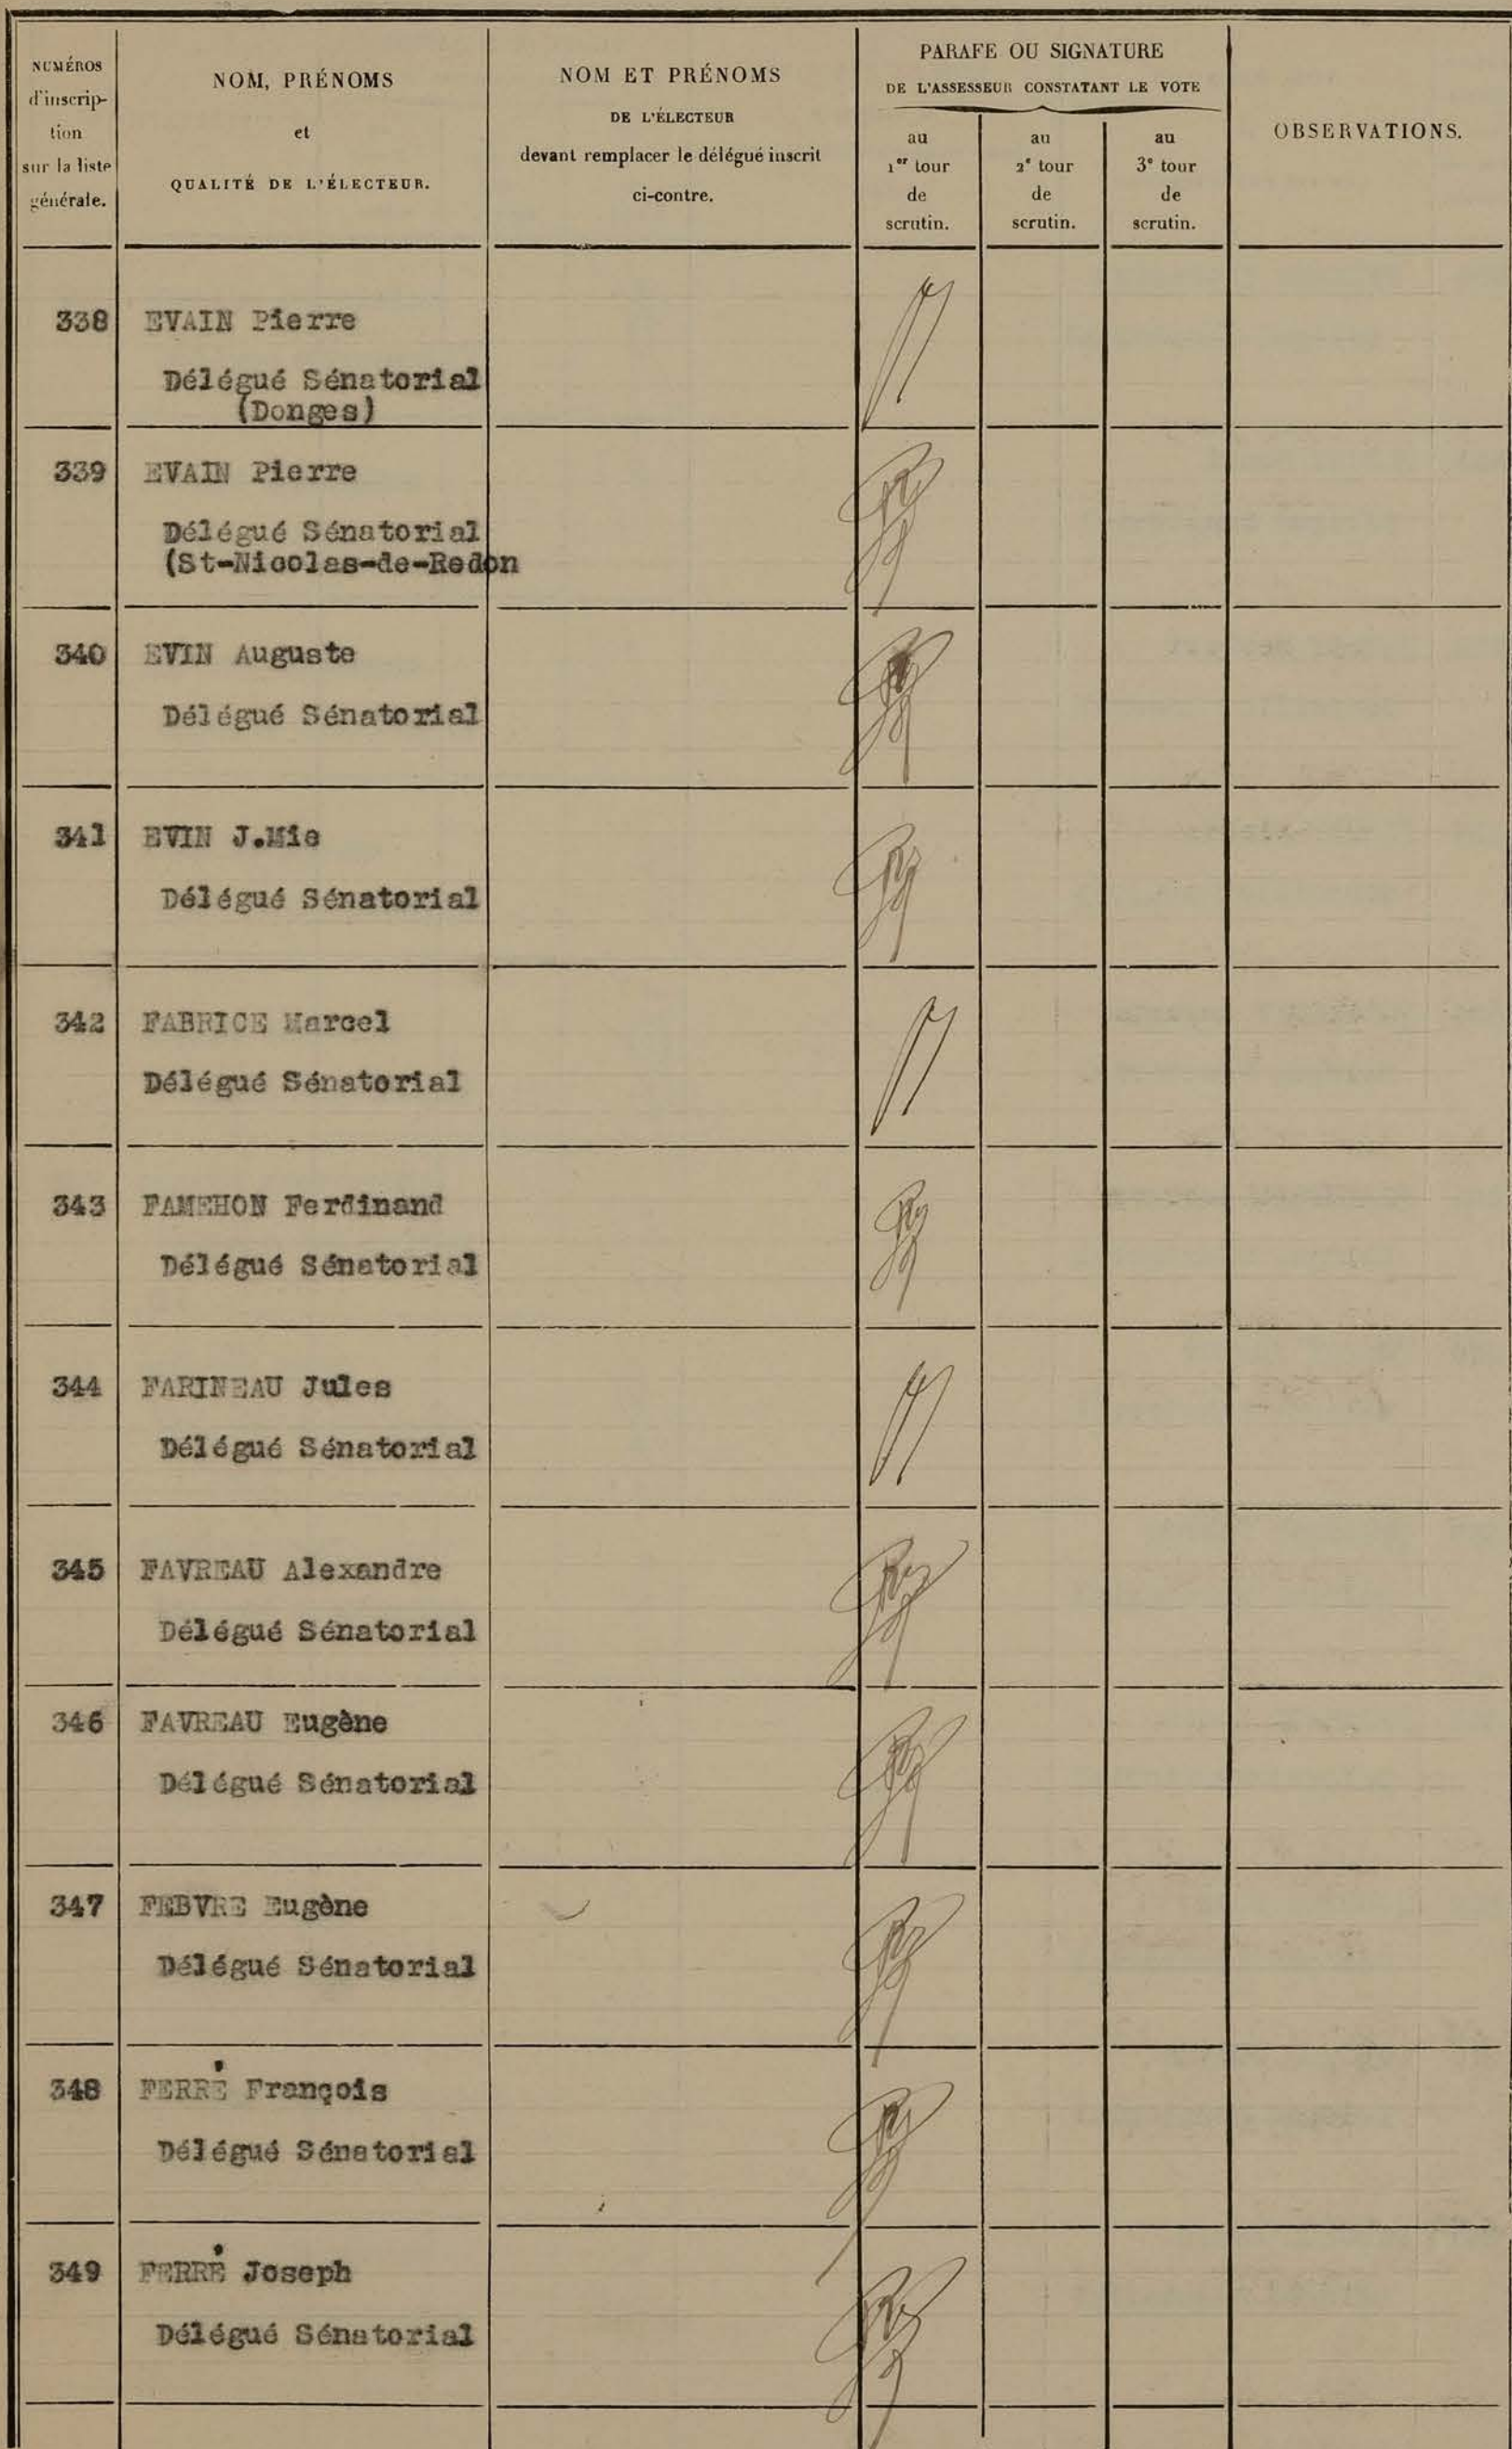 NUMÉROS
d'inscrip-
tion
sur la liste
générale.
NOM, PRÉNOMS
et
QUALITÉ DE L'ÉLECTEUR.
NOM ET PRÉNOMS
DE L'ÉLECTEUR
devant remplacer le délégué inscrit
ci-contre.
PARAFE OU SIGNATURE
DE L'ASSESSEUR CONSTATANT LE VOTE
au
1er tour
de
scrutin.
au
2e tour
de
scrutin.
au
3e tour
de
scrutin.
OBSERVATIONS.
338 EVAIN Pierre
Délégué Sénatorial
(Donges)
339 EVAIN Pierre
Délégué Sénatorial
(St-Nicolas-de-Redon
340 EVIN Auguste
Délégué Sénatorial
341 EVIN J.Mie
Délégué Sénatorial
342 FABRICE Marcel
Délégué Sénatorial
343 FAMEHON Ferdinand
Délégué Sénatorial
344 FARINEAU Jules
Délégué Sénatorial
345 FAVREAU Alexandre
Délégué Sénatorial
346 FAVREAU Eugène
Délégué Sénatorial
347 FEBVRE Eugène
Délégué Sénatorial
348 FERRÉ François
Délégué Sénatorial
349 FERRÉ Joseph
Délégué Sénatorial